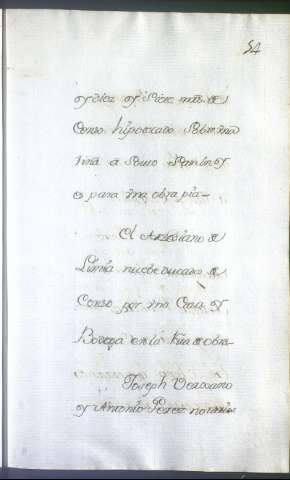 54
y diez y siete mrs. de
Censo hipotecado sobre vna
viña a Souto Penin y
es para vna obra pia—
El Arcediano de
Limia nuebe ducados de
Censo por vna Casa y
Bodega en la Rua de obra-
Joseph
y Antonio Perez notario